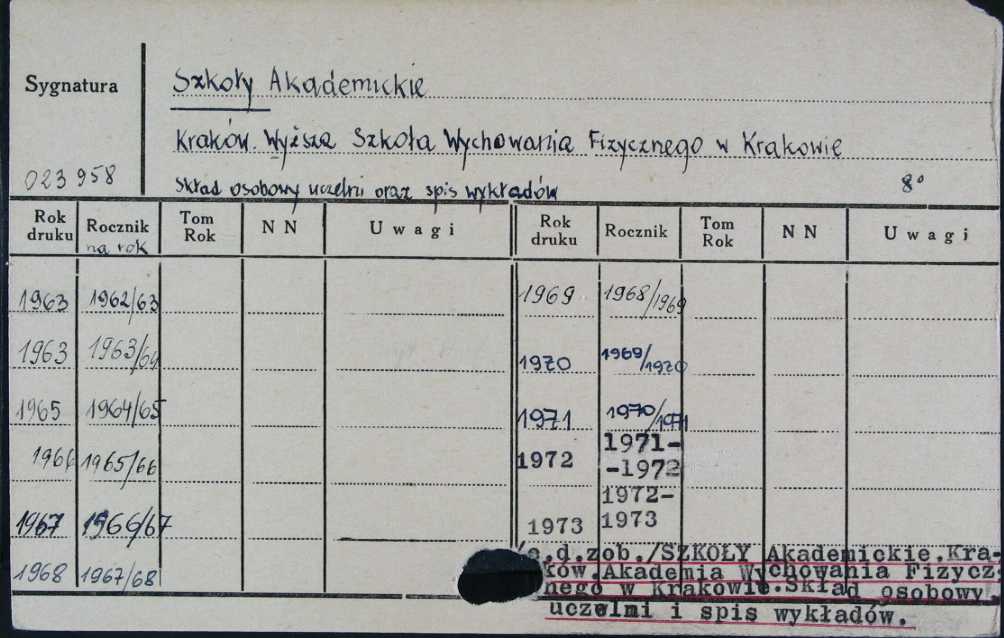 Sygnatura
Szkoły Akademickie
Kraków. Wyższa Szkoła Wychowania Fizycznego w Krakowie
023958
Skład osobowy uczelni oraz spis wykładów
8°
Rok druku Rocznik na rok Tom Rok NN Uwagi Rok druku Rocznik Tom Rok NN Uwagi
1963 1962/63 1969 1968/1969
1963 1963/64 1970 1969/1970
1965 1964/65 1971 1970/1971
1966 1965/66 1972 1971-
-1972
1967 1966/67 1973 1972-
1973
1968 1967/68
/c.d.zob./SZKOŁY Akademickie.Kra-
ków.Akademia Wychowania Fizycz-
nego w Krakowie.Skład osobowy
uczelni i spis wykładów.